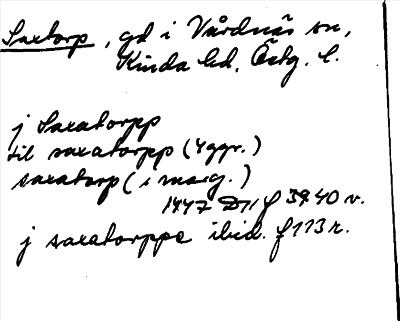 Saxtorp, gd i Vårdnäs sn,
Kinda hd, Östg. l.
j Saxatorpp
til saxatorpp (4 ggr.)
saxatorp (i marg.)
1447 D 11 f 39.40 v.
j saxatorppe ibid. f 113 r.